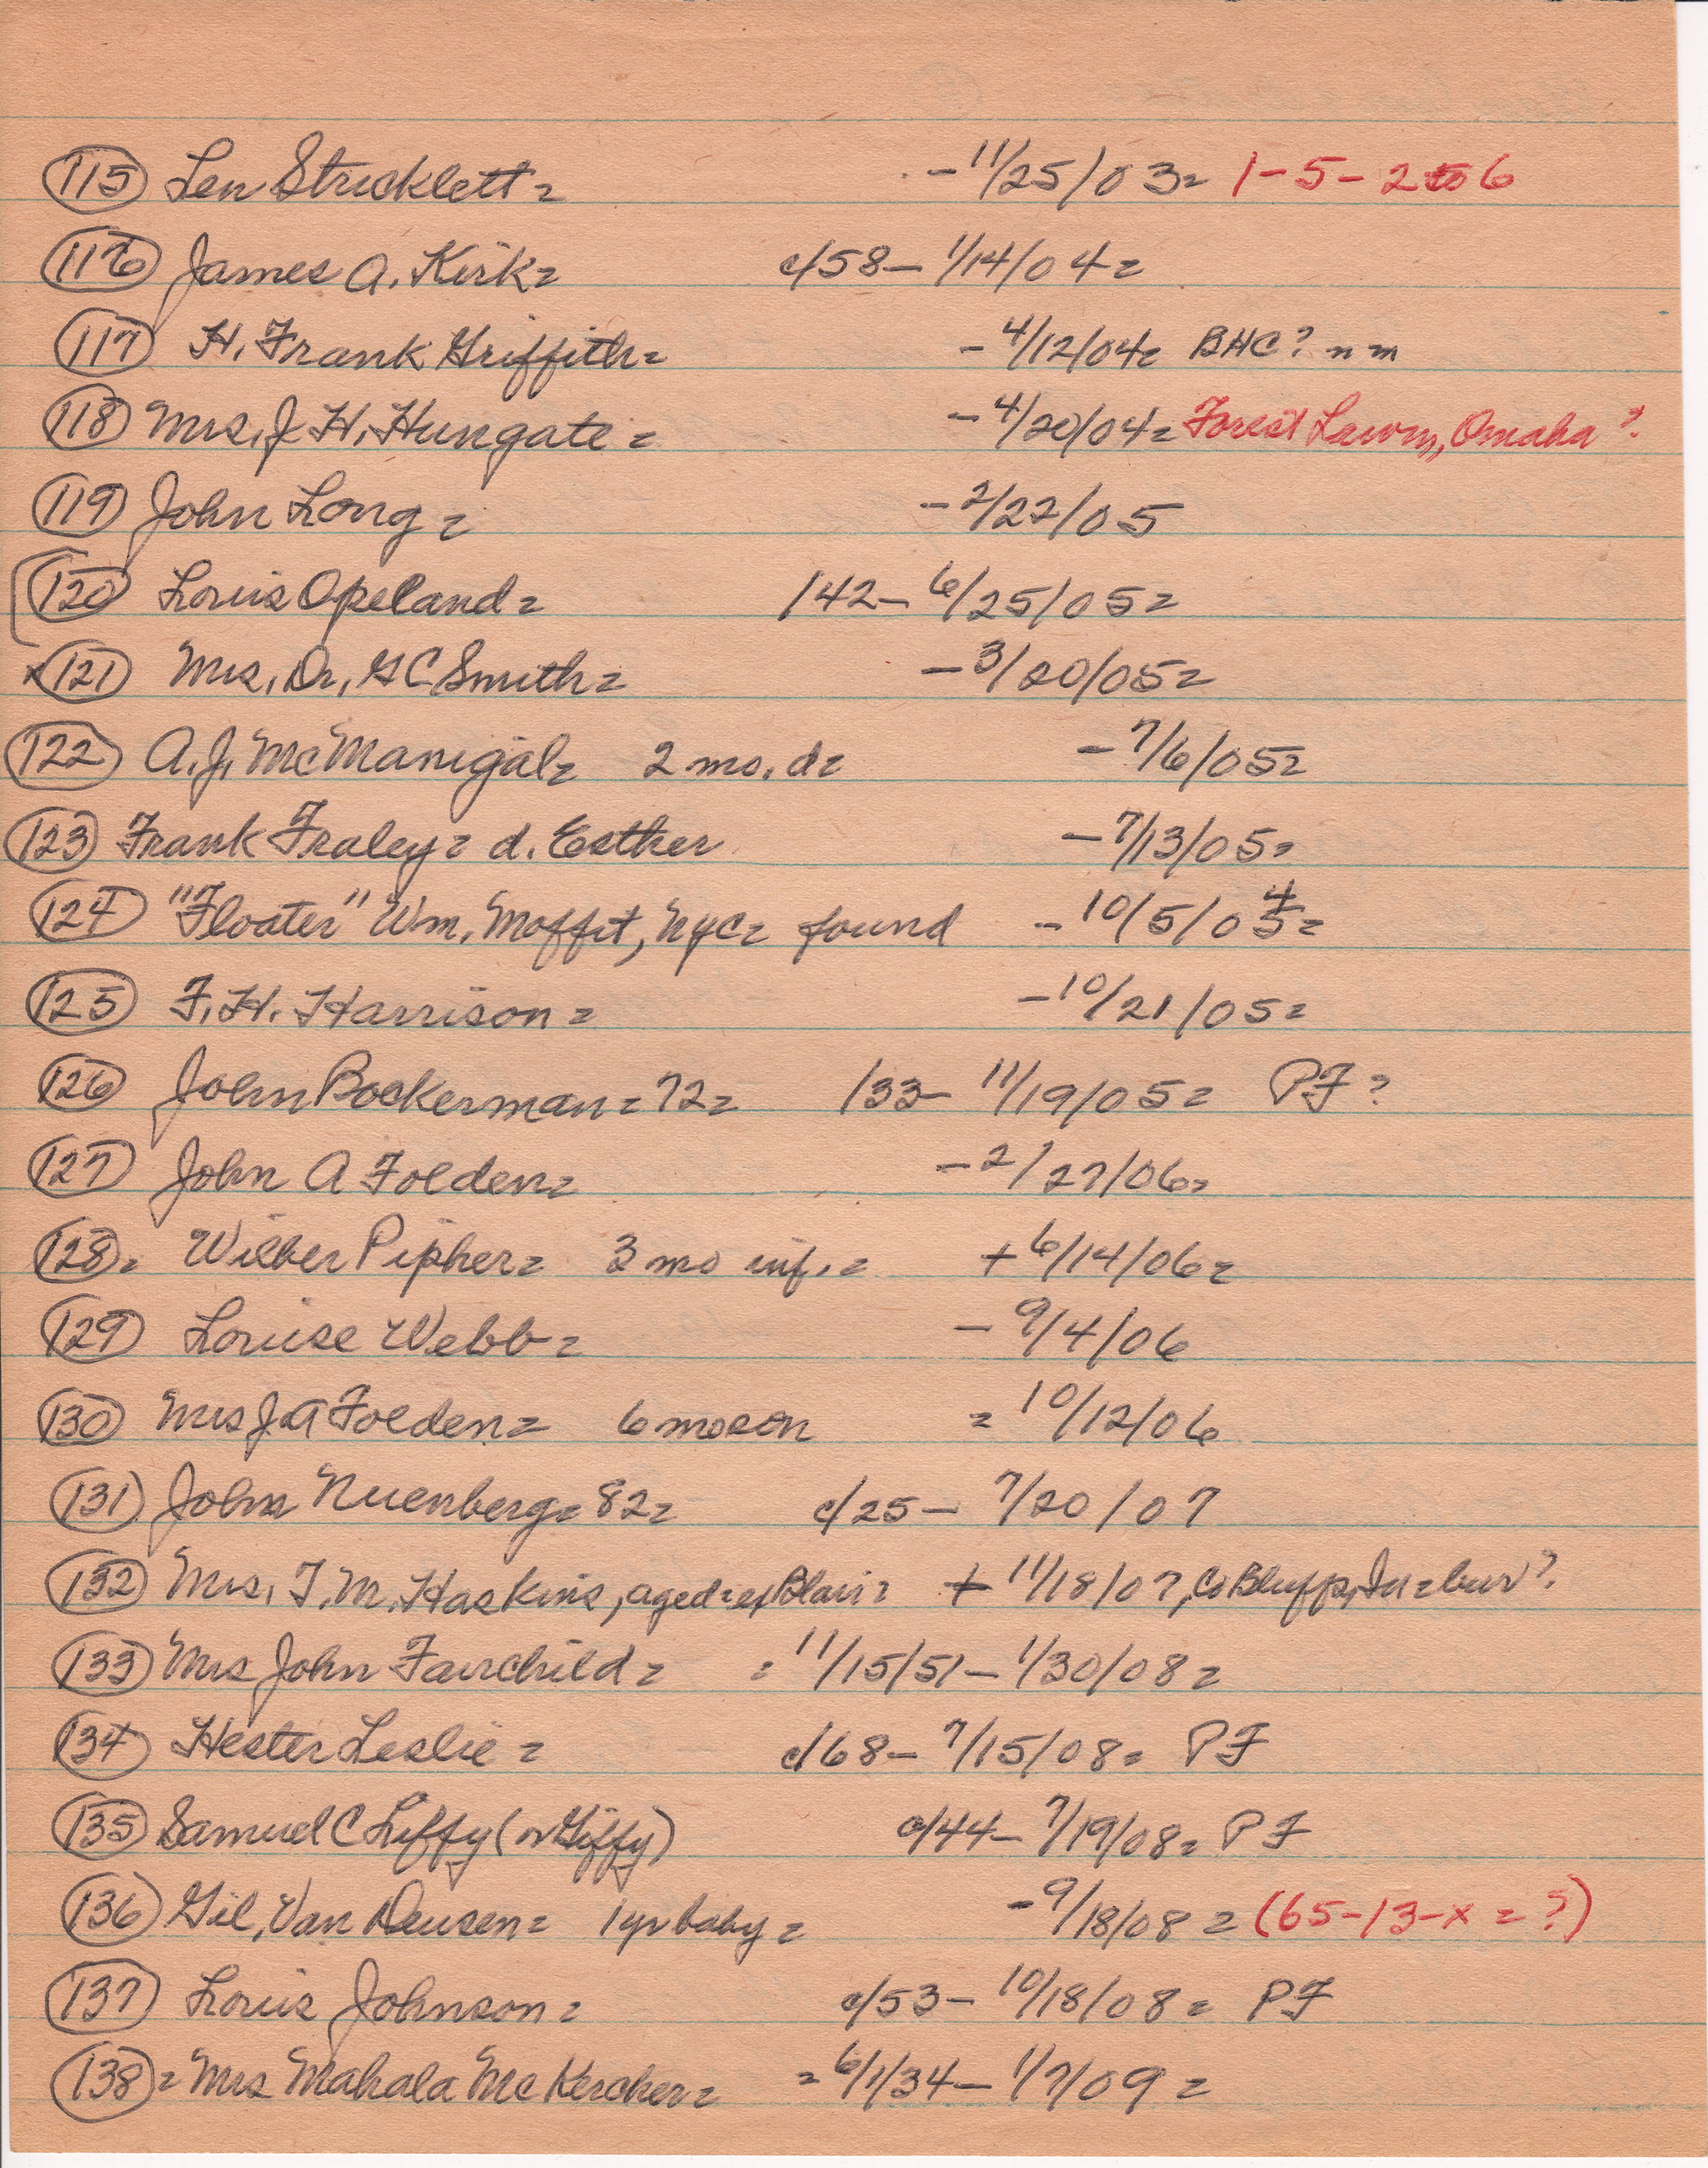 115 Len Stricklett = - 11/25/03 = 1-5-2 to 6
116 James A. Kirk = c/58 - 1/14/04 =
117 H. Frank Griffith = - 4/12/04 = BHC? n m
118 Mrs. J. H. Hungate = - 4/20/04 = Forest Lawn, Omaha?
119 John Long = - 2/22/05
120 Louis Opeland = /42 - 6/25/05 =
x 121 Mrs. Dr. G C Smith = - 3/20/05 =
122 A. J. McManigal = 2 mo. d = - 7/6/05 =
123 Frank Fraley = d. Esther - 7/13/05 =
124 "Floater" Wm. Moffit, NYC = found - 10/5/05 4 =
125 F. H. Harrison = - 10/21/05 =
126 John Bockerman = 72 = /33 - 11/19/05 = PF?
127 John A Folden = - 2/27/06 =
128 = Wilber Pipher = 3 mo inf. = + 6/14/06 =
129 Louise Webb = - 9/4/06
130 Mrs J. A Folden = 6 mo son = 10/12/06
131 John Nuenberg = 82 = c/25 - 7/20/07
132 Mrs. T. M. Haskins, aged = of Blair = + 11/18/07, Co Bluffs, Ia = bur?
133 Mrs John Fairchild = = 11/15/51 - 1/30/08 =
134 Hester Leslie = c/68 - 7/15/08 = PF
135 Samuel C Liffy (or Giffy) c/44 - 7/19/08 = PF
136 Gil. Van Deusen = 1 yr baby = - 9/18/08 = (65-13-x = ?)
137 Louis Johnson = c/53 - 10/18/08 = PF
138 = Mrs Mahala McKercher = = 6/1/34 - 1/7/09 =